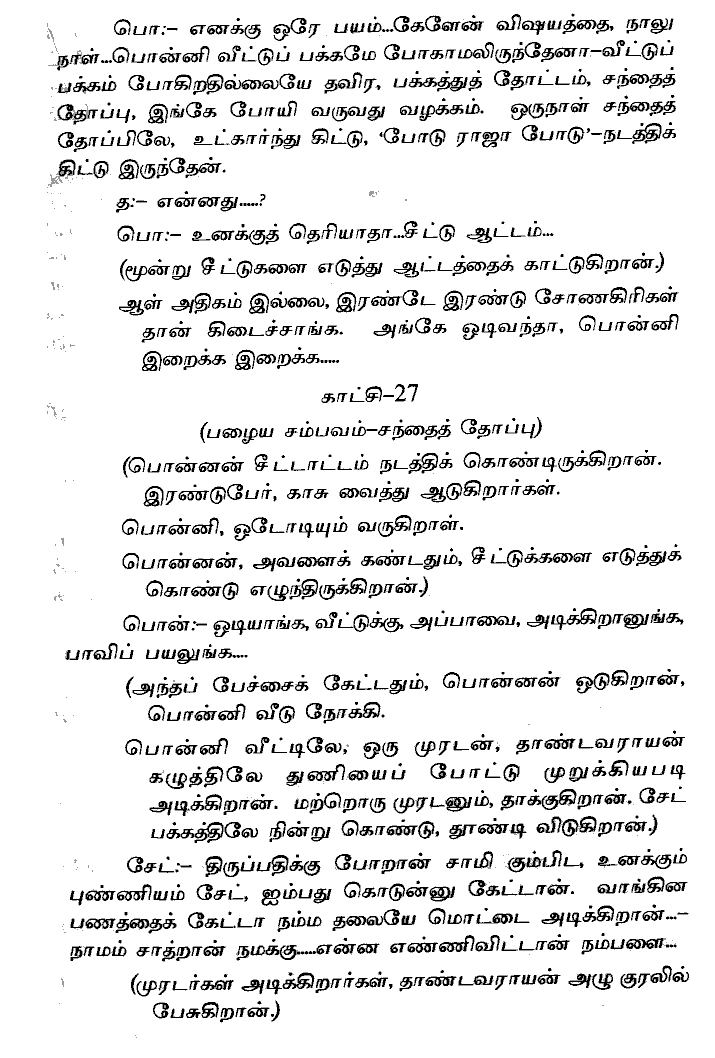 பொ:– எனக்கு ஒரே பயம்...கேளேன் விஷயத்தை, நாலு
நாள்...பொன்னி வீட்டுப் பக்கமே போகாமலிருந்தேனா–வீட்டுப்
பக்கம் போகிறதில்லையே தவிர, பக்கத்துத் தோட்டம், சந்தைத்
தோப்பு, இங்கே போயி வருவது வழக்கம். ஒருநாள் சந்தைத்
தோப்பிலே, உட்கார்ந்து கிட்டு, ‘போடு ராஜா போடு’–நடத்திக்
கிட்டு இருந்தேன்.
த:– என்னது.....?
பொ:– உனக்குத் தெரியாதா...சீட்டு ஆட்டம்...
(மூன்று சீட்டுகளை எடுத்து ஆட்டத்தைக் காட்டுகிறான்.)
ஆள் அதிகம் இல்லை, இரண்டே இரண்டு சோணகிரிகள்
தான் கிடைச்சாங்க. அங்கே ஓடிவந்தா, பொன்னி
இறைக்க இறைக்க.....
காட்சி–27
(பழைய சம்பவம்–சந்தைத் தோப்பு)
(பொன்னன் சீட்டாட்டம் நடத்திக் கொண்டிருக்கிறான்.
இரண்டுபேர், காசு வைத்து ஆடுகிறார்கள்.
பொன்னி, ஒடோடியும் வருகிறாள்.
பொன்னன், அவளைக் கண்டதும், சீட்டுக்களை எடுத்துக்
கொண்டு எழுந்திருக்கிறான்.)
பொன்:– ஒடியாங்க, வீட்டுக்கு, அப்பாவை, அடிக்கிறானுங்க,
பாவிப் பயலுங்க....
(அந்தப் பேச்சைக் கேட்டதும், பொன்னன் ஒடுகிறான்,
பொன்னி வீடு நோக்கி.
பொன்னி வீட்டிலே, ஒரு முரடன், தாண்டவராயன்
கழுத்திலே துணியைப் போட்டு முறுக்கியபடி
அடிக்கிறான். மற்றொரு முரடனும், தாக்குகிறான். சேட்
பக்கத்திலே நின்று கொண்டு, தூண்டி விடுகிறான்.)
சேட்:– திருப்பதிக்கு போறான் சாமி கும்பிட, உனக்கும்
புண்ணியம் சேட், ஐம்பது கொடுன்னு கேட்டான். வாங்கின
பணத்தைக் கேட்டா நம்ம தலையே மொட்டை அடிக்கிறான்...–
நாமம் சாத்றான் நமக்கு.....என்ன எண்ணிவிட்டான் நம்பளை...
(முரடர்கள் அடிக்கிறார்கள், தாண்டவராயன் அழு குரலில்
பேசுகிறான்.)